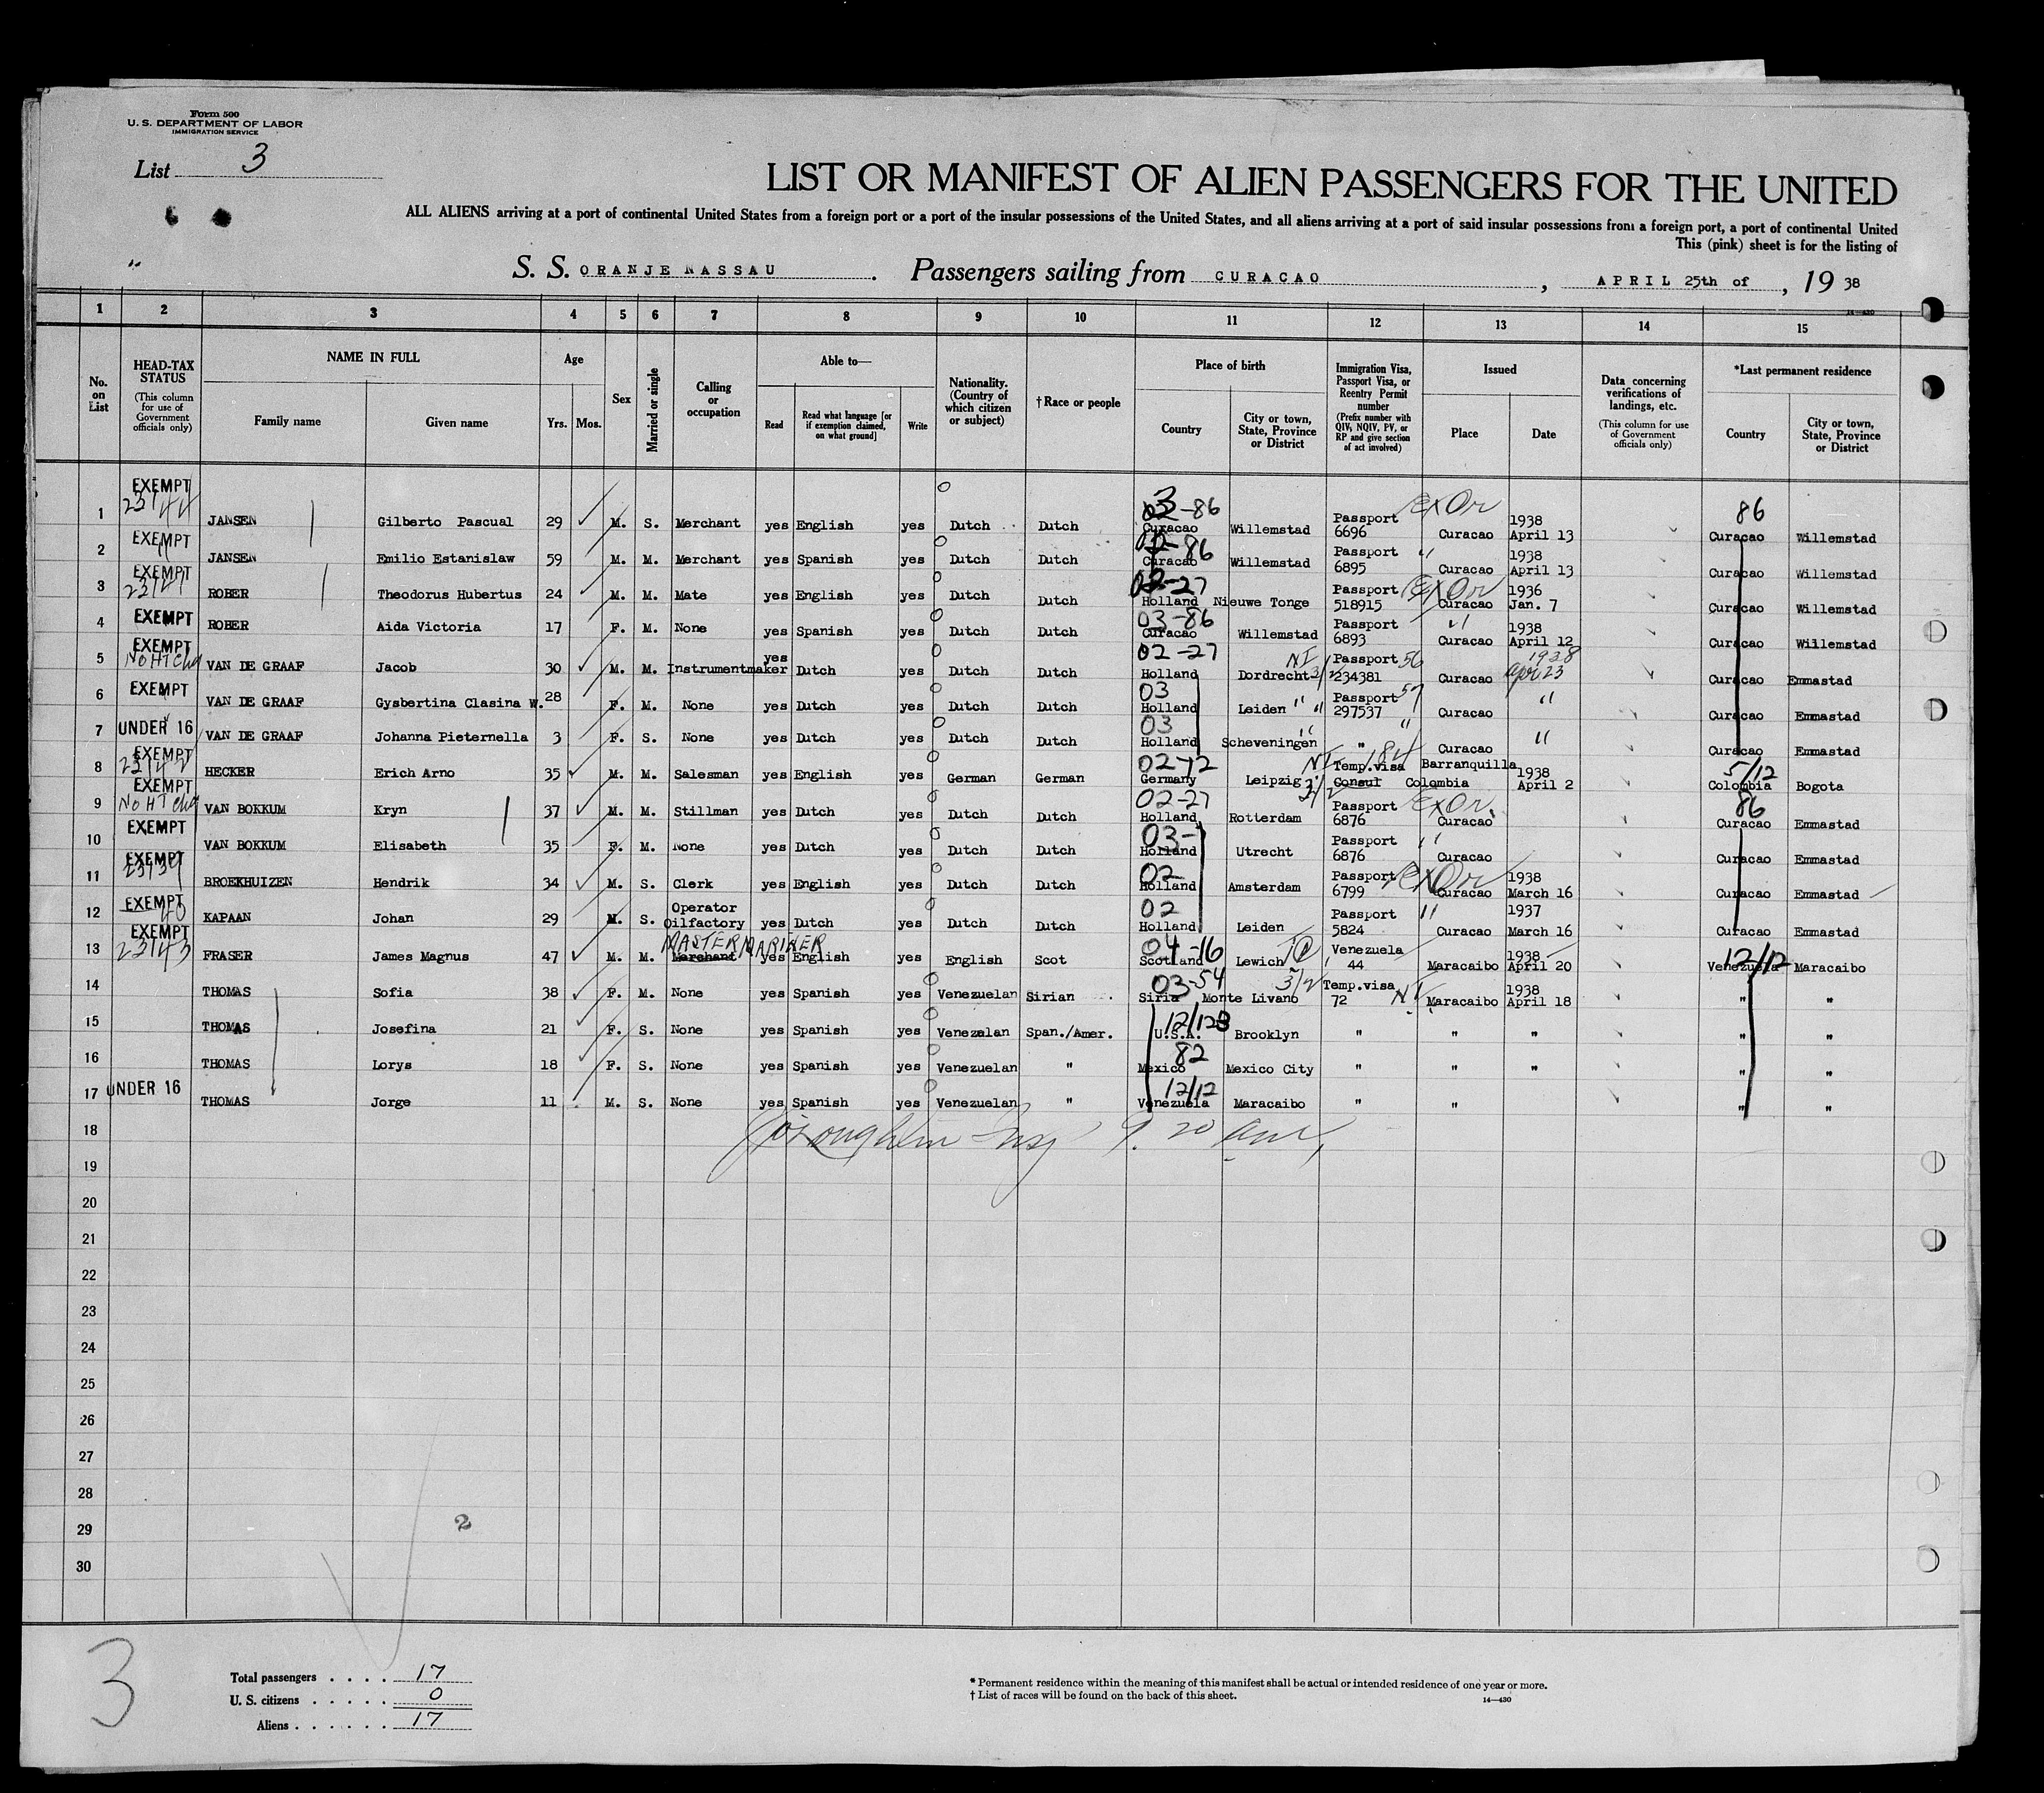 Form 500
U. S. DEPARTMENT OF LABOR
IMMIGRATION SERVICE
List 3
LIST OR MANIFEST OF ALIEN PASSENGERS FOR THE UNITED
ALL ALIENS arriving at a port of continental United States from a foreign port or a port of the insular possessions of the United States, and all aliens arriving at a port of said insular possessions from a foreign port, a port of continental United
This (pink) sheet is for the listing of
S. S. ORANJE NASSAU. Passengers sailing from CURACAO, APRIL 25th of, 19 38
14—430
1 2 3 4 5 6 7 8 9 10 11 12 13 14 15
No. on List
HEAD-TAX STATUS (This column for use of Government officials only)
NAME IN FULL Family name Given name
Age Yrs. Mos.
Sex
Married or single
Calling or occupation
Able to— Read Read what language [or if exemption claimed, on what ground] Write
Nationality. (Country of which citizen or subject)
† Race or people
Place of birth Country City or town, State, Province or District
Immigration Visa, Passport Visa, or Reentry Permit number (Prefix number with QIV, NQIV, PV, or RP and give section of act involved)
Issued Place Date
Data concerning verifications of landings, etc. (This column for use of Government officials only)
*Last permanent residence Country City or town, State, Province or District
1 EXEMPT 23144 JANSEN Gilberto Pascual 29 M. S. Merchant yes English yes Dutch Dutch 03-86 Curacao Willemstad Passport 6696 Ex Or Curacao 1938 April 13 86 Curacao Willemstad
2 EXEMPT " JANSEN Emilio Estanislaw 59 M. M. Merchant yes Spanish yes Dutch Dutch 02-86 Curacao Willemstad Passport 6895 " Curacao 1938 April 13 Curacao Willemstad
3 EXEMPT 23141 ROBER Theodorus Hubertus 24 M. M. Mate yes English yes Dutch Dutch 02-27 Holland Nieuwe Tonge Passport 518915 Ex Or Curacao 1936 Jan. 7 Curacao Willemstad
4 EXEMPT ROBER Aida Victoria 17 F. M. None yes Spanish yes Dutch Dutch 03-86 Curacao Willemstad Passport 6893 " Curacao 1938 April 12 Curacao Willemstad
5 EXEMPT No HT Chg VAN DE GRAAF Jacob 30 M. M. Instrumentmaker yes Dutch yes Dutch Dutch 02-27 Holland Dordrecht NI 3/2 Passport 56 234381 Curacao 1938 Apr 23 Curacao Emmastad
6 EXEMPT VAN DE GRAAF Gysbertina Clasina W. 28 F. M. None yes Dutch yes Dutch Dutch 03 Holland Leiden " " Passport 57 297537 Curacao " Curacao Emmastad
7 UNDER 16 VAN DE GRAAF Johanna Pieternella 3 F. S. None yes Dutch yes Dutch Dutch 03 Holland Scheveningen " " " Curacao " Curacao Emmastad
8 EXEMPT 23142 HECKER Erich Arno 35 M. M. Salesman yes English yes German German 02-12 Germany Leipzig NI 3/2 Temp.visa 184 Consul Barranquilla Colombia 1938 April 2 5/12 Colombia Bogota
9 EXEMPT No HT Chg VAN BOKKUM Kryn 37 M. M. Stillman yes Dutch yes Dutch Dutch 02-27 Holland Rotterdam Passport 6876 Ex Or Curacao 86 Curacao Emmastad
10 EXEMPT VAN BOKKUM Elisabeth 35 F. M. None yes Dutch yes Dutch Dutch 03- Holland Utrecht Passport 6876 " Curacao Curacao Emmastad
11 EXEMPT 23139 BROEKHUIZEN Hendrik 34 M. S. Clerk yes English yes Dutch Dutch 02 Holland Amsterdam Passport 6799 Ex Or Curacao 1938 March 16 Curacao Emmastad
12 EXEMPT 40 KAPAAN Johan 29 M. S. Operator Oilfactory yes Dutch yes Dutch Dutch 02 Holland Leiden Passport 5824 " Curacao 1937 March 16 Curacao Emmastad
13 EXEMPT 23143 FRASER James Magnus 47 M. M. MASTER MARINER Merchant yes English yes English Scot 04-16 Scotland Lewich Venezuela 44 Maracaibo 1938 April 20 12/12 Venezuela Maracaibo
14 THOMAS Sofia 38 F. M. None yes Spanish yes Venezuelan Sirian 03-54 Siria Monte Livano 3/2 Temp.visa 72 NI Maracaibo 1938 April 18 " "
15 THOMAS Josefina 21 F. S. None yes Spanish yes Venezalan Span./Amer. 12/123 U.S.A. Brooklyn " " " " "
16 THOMAS Lorys 18 F. S. None yes Spanish yes Venezuelan " 82 Mexico Mexico City " " " " "
17 UNDER 16 THOMAS Jorge 11 M. S. None yes Spanish yes Venezuelan " 12/12 Venezuela Maracaibo " " " "
18 9.20 am
19
20
21
22
23
24
25
26
27
28
29
30
2
3
Total passengers . . . . 17
U. S. citizens . . . . . 0
Aliens . . . . . . 17
* Permanent residence within the meaning of this manifest shall be actual or intended residence of one year or more.
† List of races will be found on the back of this sheet.
14—430